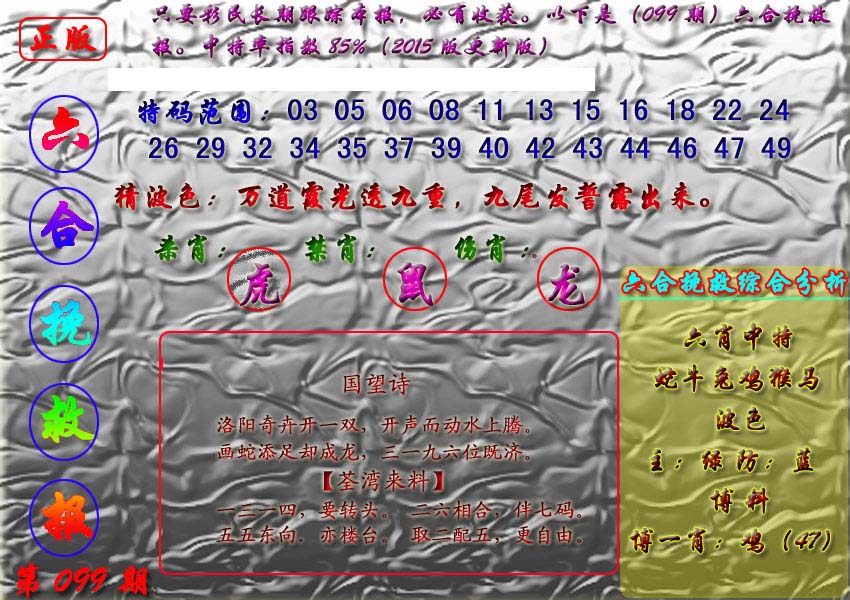 正版
只要彩民长期跟踪本报，必有收获。以下是（099期）六合挽救
报。中特率指数85%（2015版更新版）
特码范围：03 05 06 08 11 13 15 16 18 22 24
26 29 32 34 35 37 39 40 42 43 44 46 47 49
猜波色：万道霞光透九重，九尾发誓露出来。
杀肖：虎 禁肖：鼠 伤肖：龙
六
合
挽
救
报
第099期
国望诗
洛阳奇卉开一双，开声而动水上腾。
画蛇添足却成龙，三一九六位既济。
【荃湾来料】
一三一四，要转头。 二六相合，伴七码。
五五东向．亦楼台。 取二配五，更自由。
六合挽救综合分析
六肖中特
蛇牛兔鸡猴马
波色
主：绿防：蓝
博料
博一肖：鸡（47）